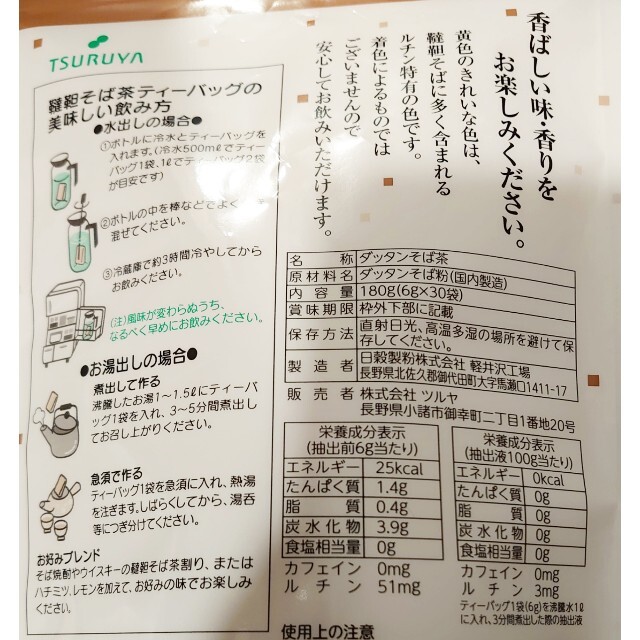 TSURUYA
韃靼そば茶ティーバッグの
美味しい飲み方
●水出しの場合●
①ボトルに冷水とティーバッグを
入れます。(冷水500mlでティー
バッグ1袋、1ℓでティーバッグ2袋
が目安です)
②ボトルの中を棒などでよく
混ぜてください。
③冷蔵庫で約3時間冷やしてから
お飲みください。
(注)風味が変わらぬうち、
なるべく早めにお飲みください。
●お湯出しの場合●
煮出して作る
沸騰したお湯1〜1.5ℓにティーバ
ッグ1袋を入れ、3〜5分間煮出し
てお召し上がりください。
急須で作る
ティーバッグ1袋を急須に入れ、熱湯
を注ぎます。しばらくしてから、湯呑
等につぎ分けてください。
お好みブレンド
そば焼酎やウイスキーの韃靼そば茶割り、または
ハチミツ、レモンを加えて、お好みの味でお楽しみ
ください。
香ばしい味・香りを
お楽しみください。
黄色のきれいな色は、
韃靼そばに多く含まれる
ルチン特有の色です。
着色によるものでは
ございませんので
安心してお飲みいただけます。
名称 ダッタンそば茶
原材料名 ダッタンそば粉(国内製造)
内容量 180g(6g×30袋)
賞味期限 枠外下部に記載
保存方法 直射日光、高温多湿の場所を避けて保
存してください。
製造者 日穀製粉株式会社 軽井沢工場
長野県北佐久郡御代田町大字馬瀬口1411-17
販売者 株式会社 ツルヤ
長野県小諸市御幸町二丁目1番地20号
栄養成分表示
(抽出前6g当たり)
エネルギー 25kcal
たんぱく質 1.4g
脂質 0.4g
炭水化物 3.9g
食塩相当量 0g
カフェイン 0mg
ルチン 51mg
栄養成分表示
(抽出液100g当たり)
エネルギー 0kcal
たんぱく質 0g
脂質 0g
炭水化物 0g
食塩相当量 0g
カフェイン 0mg
ルチン 3mg
ティーバッグ1袋(6g)を沸騰水1ℓ
に入れ、3分間煮出した際の抽出液
使用上の注意